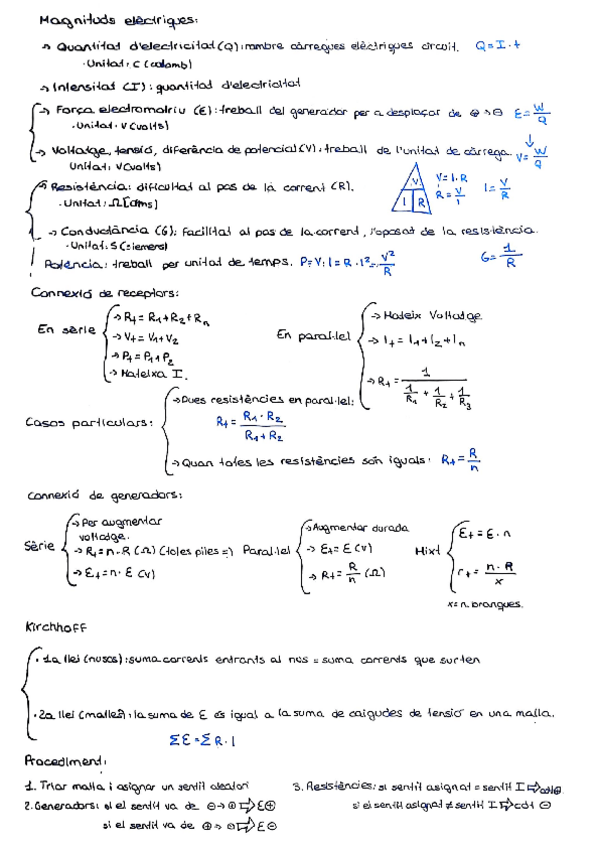 Magnituds elèctriques:
→ Quantitat d'electricitat (Q): nombre càrregues elèctriques circuit. Q = I · t
· Unitat: C (coulomb)
→ Intensitat (I): quantitat d'electricitat
→ Força electromotriu (E): treball del generador per a desplaçar de ⊕ → ⊖ E = W/Q
· Unitat: V (volts)
→ Voltatge, tensió, diferència de potencial (V): treball de l'unitat de càrrega. V = W/Q
Unitat: V (volts)
→ Resistència: dificultat al pas de la corrent (R). V I R V = I · R I = V/R
· Unitat: Ω (ohms) R = V/I
→ Conductància (G): Facilitat al pas de la corrent, l'oposat de la resistència.
· Unitat: S (siemens) G = 1/R
Potència: treball per unitat de temps. P = V · I = R · I² = V²/R
Connexió de receptors:
En sèrie
→ Rt = R1 + R2 + Rn
→ Vt = V1 + V2
→ Pt = P1 + P2
→ Mateixa I.
En paral·lel
→ Mateix Voltatge
→ It = I1 + I2 + In
→ Rt = 1 / (1/R1 + 1/R2 + 1/R3)
Casos particulars:
→ Dues resistències en paral·lel:
Rt = R1 · R2 / R1 + R2
→ Quan totes les resistències són iguals: Rt = R/n
Connexió de generadors:
Sèrie
→ Per augmentar
voltatge.
→ Rt = n · R (Ω) (totes piles =)
→ Et = n · E (V)
Paral·lel
→ Augmentar durada
→ Et = E (V)
→ Rt = R/n (Ω)
Mixt
Et = E · n
rt = n · R / x
x = n. branques.
Kirchhoff
· 1a llei (nusos): suma corrents entrants al nus = suma corrents que surten
· 2a llei (malles): la suma de E és igual a la suma de caigudes de tensió en una malla.
ΣE = ΣR · I
Procediment:
1. Triar malla i asignar un sentit aleatori
2. Generadors: si el sentit va de ⊖ → ⊕ ⇒ E⊕
si el sentit va de ⊕ → ⊖ ⇒ E⊖
3. Resistències: si sentit asignat = sentit I ⇒ cdt ⊕.
si el sentit asignat ≠ sentit I ⇒ cdt ⊖